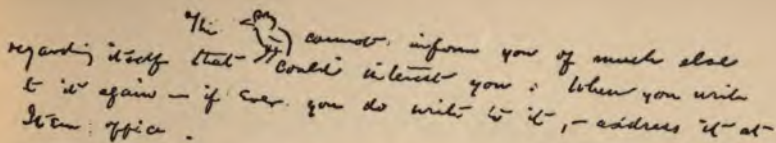 This cannot inform you of much else
regarding itself that could interest you : When you write
t it again — if ever you do write to it, — address it at
Item office.